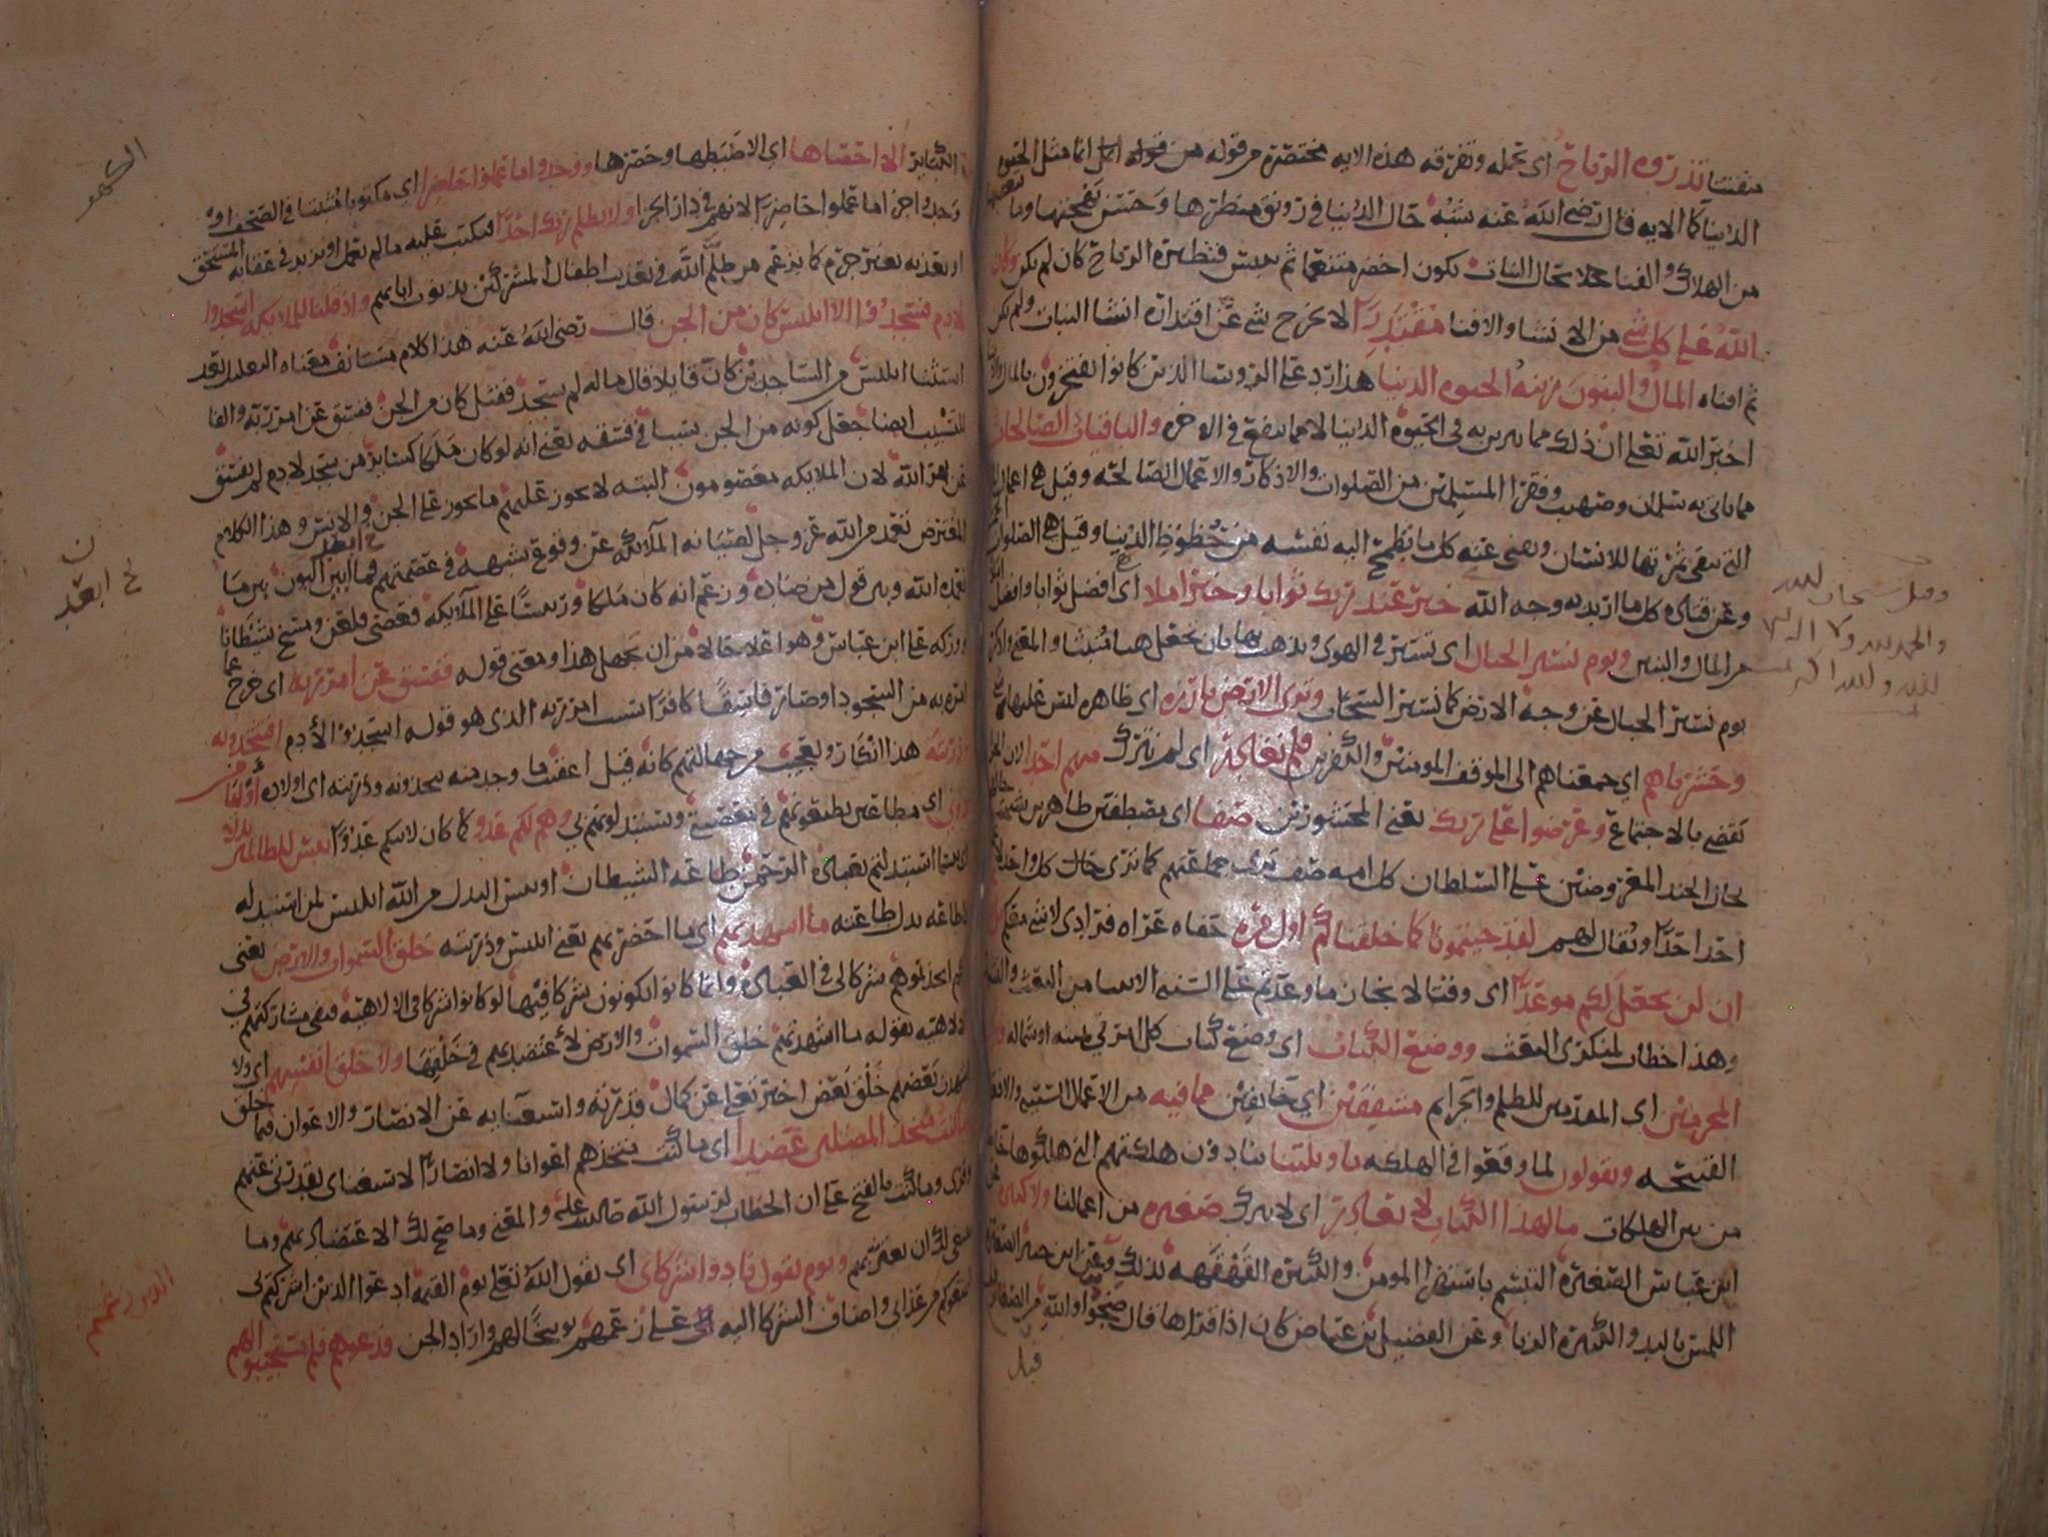 متفتتا تذروه الرياح اي تحمله وتفرقه هذه الايه مختصره من قوله انما مثل الحيوه
الدنيا كما الايه قال رضي الله عنه شبه حال الدنيا في رونق منظرها وحسن بهجتها وما يتعقبها
من الهلاك والفنا بحال النبات يكون اخضر ثم ييبس فتطيره الرياح كان لم يكن وكان
الله على كل شي من الانشا والافنا مقتدرا لا يخرج شي عن اقتداره انشا النبات ولم يكن
ثم افناه المال والبنون زينه الحيوه الدنيا هذا رد على الروسا الذين كانوا يفتخرون بالمال
اخبر الله تعلى ان ذلك مما يتزين به في الحيوه الدنيا لا مما ينفع في الاخره والباقيات الصالحات
مما ياتي به سلمان وصهيب وفقرا المسلمين من الصلوات والاذكار والاعمال الصالحه وقيل هي اعمال
التي تبقى ثمرتها للانسان ويفنى عنه كل ما تطمح اليه نفسه من حظوظ الدنيا وقيل هي الصلوات
وعن قتاده كل ما اريد به وجه الله خير عند ربك ثوابا وخير املا اي افضل ثوابا وافضل
من المال والبنين ويوم نسير الجبال اي تسير في الهوى ويذهب بها بان تجعل هبا منبثا والمعنى واذكر
يوم نسير الجبال عن وجه الارض كما نسير السحاب وترى الارض بارزه اي ظاهره ليس عليها
وحشرناهم اي جمعناهم الى الموقف المومنين والكفرين فلم نغادر اي لم نترك منهم احدا
يقضي بالاجتماع وعرضوا على ربك يعني المحشورين صفا اي مصطفين ظاهرين
بحال الجند المعروضين على السلطان كل امه صف يرى جماعتهم كما ترى حال كل واحد
احدا احدا ويقال لهم لقد جيتمونا كما خلقناكم اول مره حفاه عراه فرادى لا شي معكم
ان لن نجعل لكم موعدا اي وقتا لانجاز ما وعدتم على السنه الانبيا من البعث
وهذا خطاب لمنكري البعث ووضع الكتاب اي وضع كتاب كل امري في يمينه او شماله
المجرمين اي المقدمين للظلم والجرايم مشفقين اي خايفين مما فيه من الاعمال السييه
القبيحه ويقولون لما وقعوا في الهلكه يا ويلتنا ينادون هلكتهم التي هلكوها
من بين الهلكات مالهذا الكتاب لا يغادر اي لا يترك صغيره من اعمالنا ولا كبيره
ابن عباس الصغيره التبسم باستهزا المومن والكبيره القهقهه بذلك وعن ابن جبير الصغيره
اللمس باليد والكبيره الزنا وعن الفضيل بن عياض كان اذا قراها قال ضجوا والله من الصغاير
قبل
وقيل سبحان الله
والحمد لله ولا اله الا
الله والله اكبر
الكهف
الكباير الا احصاها اي الا ضبطها وحصرها ووجدوا ما عملوا حاضرا اي مكتوبا مثبتا في الصحف او
وجدوا جزا ما عملوا حاضرا لانهم في دار الجزا ولا يظلم ربك احدا فيكتب عليه ما لم يعمل او يزيد في عقابه المستحق
او يعذبه بغير جرم كما يزعم من ظلم الله في تعذيب اطفال المشركين بذنوب ابايهم واذ قلنا للملايكه اسجدوا
لادم فسجدوا الا ابليس كان من الجن قال رضي الله عنه هذا كلام مستانف معناه التعليل بعد
استثنا ابليس من الساجدين كان قايلا قال ماله لم يسجد فقيل كان من الجن ففسق عن امر ربه والفا
للتسبيب ايضا جعل كونه من الجن سببا في فسقه يعني انه لو كان ملكا كساير من سجد لادم لم يفسق
عن امر الله لان الملايكه معصومون البته لا يجوز عليهم ما يجوز على الجن والانس وهذا الكلام
المعترض تعمد من الله عز وجل لصيانه الملايكه عن وقوع شبهه في عصمتهم فما ابعد البون بين ما
تعمده الله وبين قول من ضاده وزعم انه كان ملكا ورييسا على الملايكه فعصى فلعن ومسخ شيطانا
ووركه على ابن عباس وهو اعلا حالا من ان يجهل هذا ومعنى قوله ففسق عن امر ربه اي خرج عما
امره به من السجود او صار فاسقا كافرا بسبب امر ربه الذي هو قوله اسجدوا لادم افتتخذونه
وذريته هذا انكار وتعجيب من جهالتهم كانه قيل اعقيب ما وجد منه تتخذونه وذريته اي اولاده اوليا من
دوني اي مطاعين تطيعونهم في معصيتي وتستبدلونهم بي وهم لكم عدو كما كان لابيكم عدوا بيس للظالمين بدلا
اي بيسما استبدلتم بعباده الرحمن طاعه الشيطان او بيس البدل من الله ابليس لمن استبدله
فاطاعه بدل طاعته ما اشهدتهم اي ما احضرتهم يعني ابليس وذريته خلق السموات والارض يعني
انكم اتخذتموهم شركا لي في العباده وانما كانوا يكونون شركا فيها لو كانوا شركا في الالاهيه فنفى مشاركتهم في
الالاهيه بقوله ما اشهدتهم خلق السموات والارض لاعتضد بهم في خلقها ولا خلق انفسهم اي ولا
اشهدت بعضهم خلق بعض اخبر تعلى عن كمال قدرته واستغنايه عن الانصار والاعوان فيما خلق
وما كنت متخذ المضلين عضدا اي ما كنت متخذهم اعوانا ولا انصارا لاستغناي بقدرتي عنهم
وقري وما كنت بالفتح على ان الخطاب لرسول الله صلى الله عليه والمعنى وما صح لك الاعتضاد بهم وما
ينبغي لك ان تعتز بهم ويوم يقول نادوا شركاي اي يقول الله تعلى يوم القيمه ادعوا الذين اشركتم بي
ليمنعوكم من عذابي واضاف الشركا اليه على زعمهم توبيخا لهم واراد الجن فدعوهم فلم يستجيبوا لهم
ن
خ ابعد
الذين زعمتم